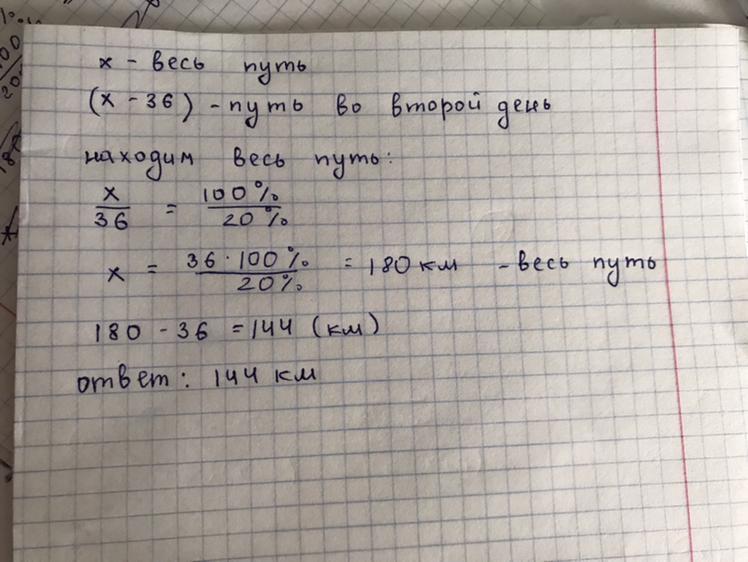 x - весь путь
(x - 36) - путь во второй день
находим весь путь:
x/36 = 100%/20%
x = 36 · 100%/20% = 180 км - весь путь
180 - 36 = 144 (км)
ответ: 144 км